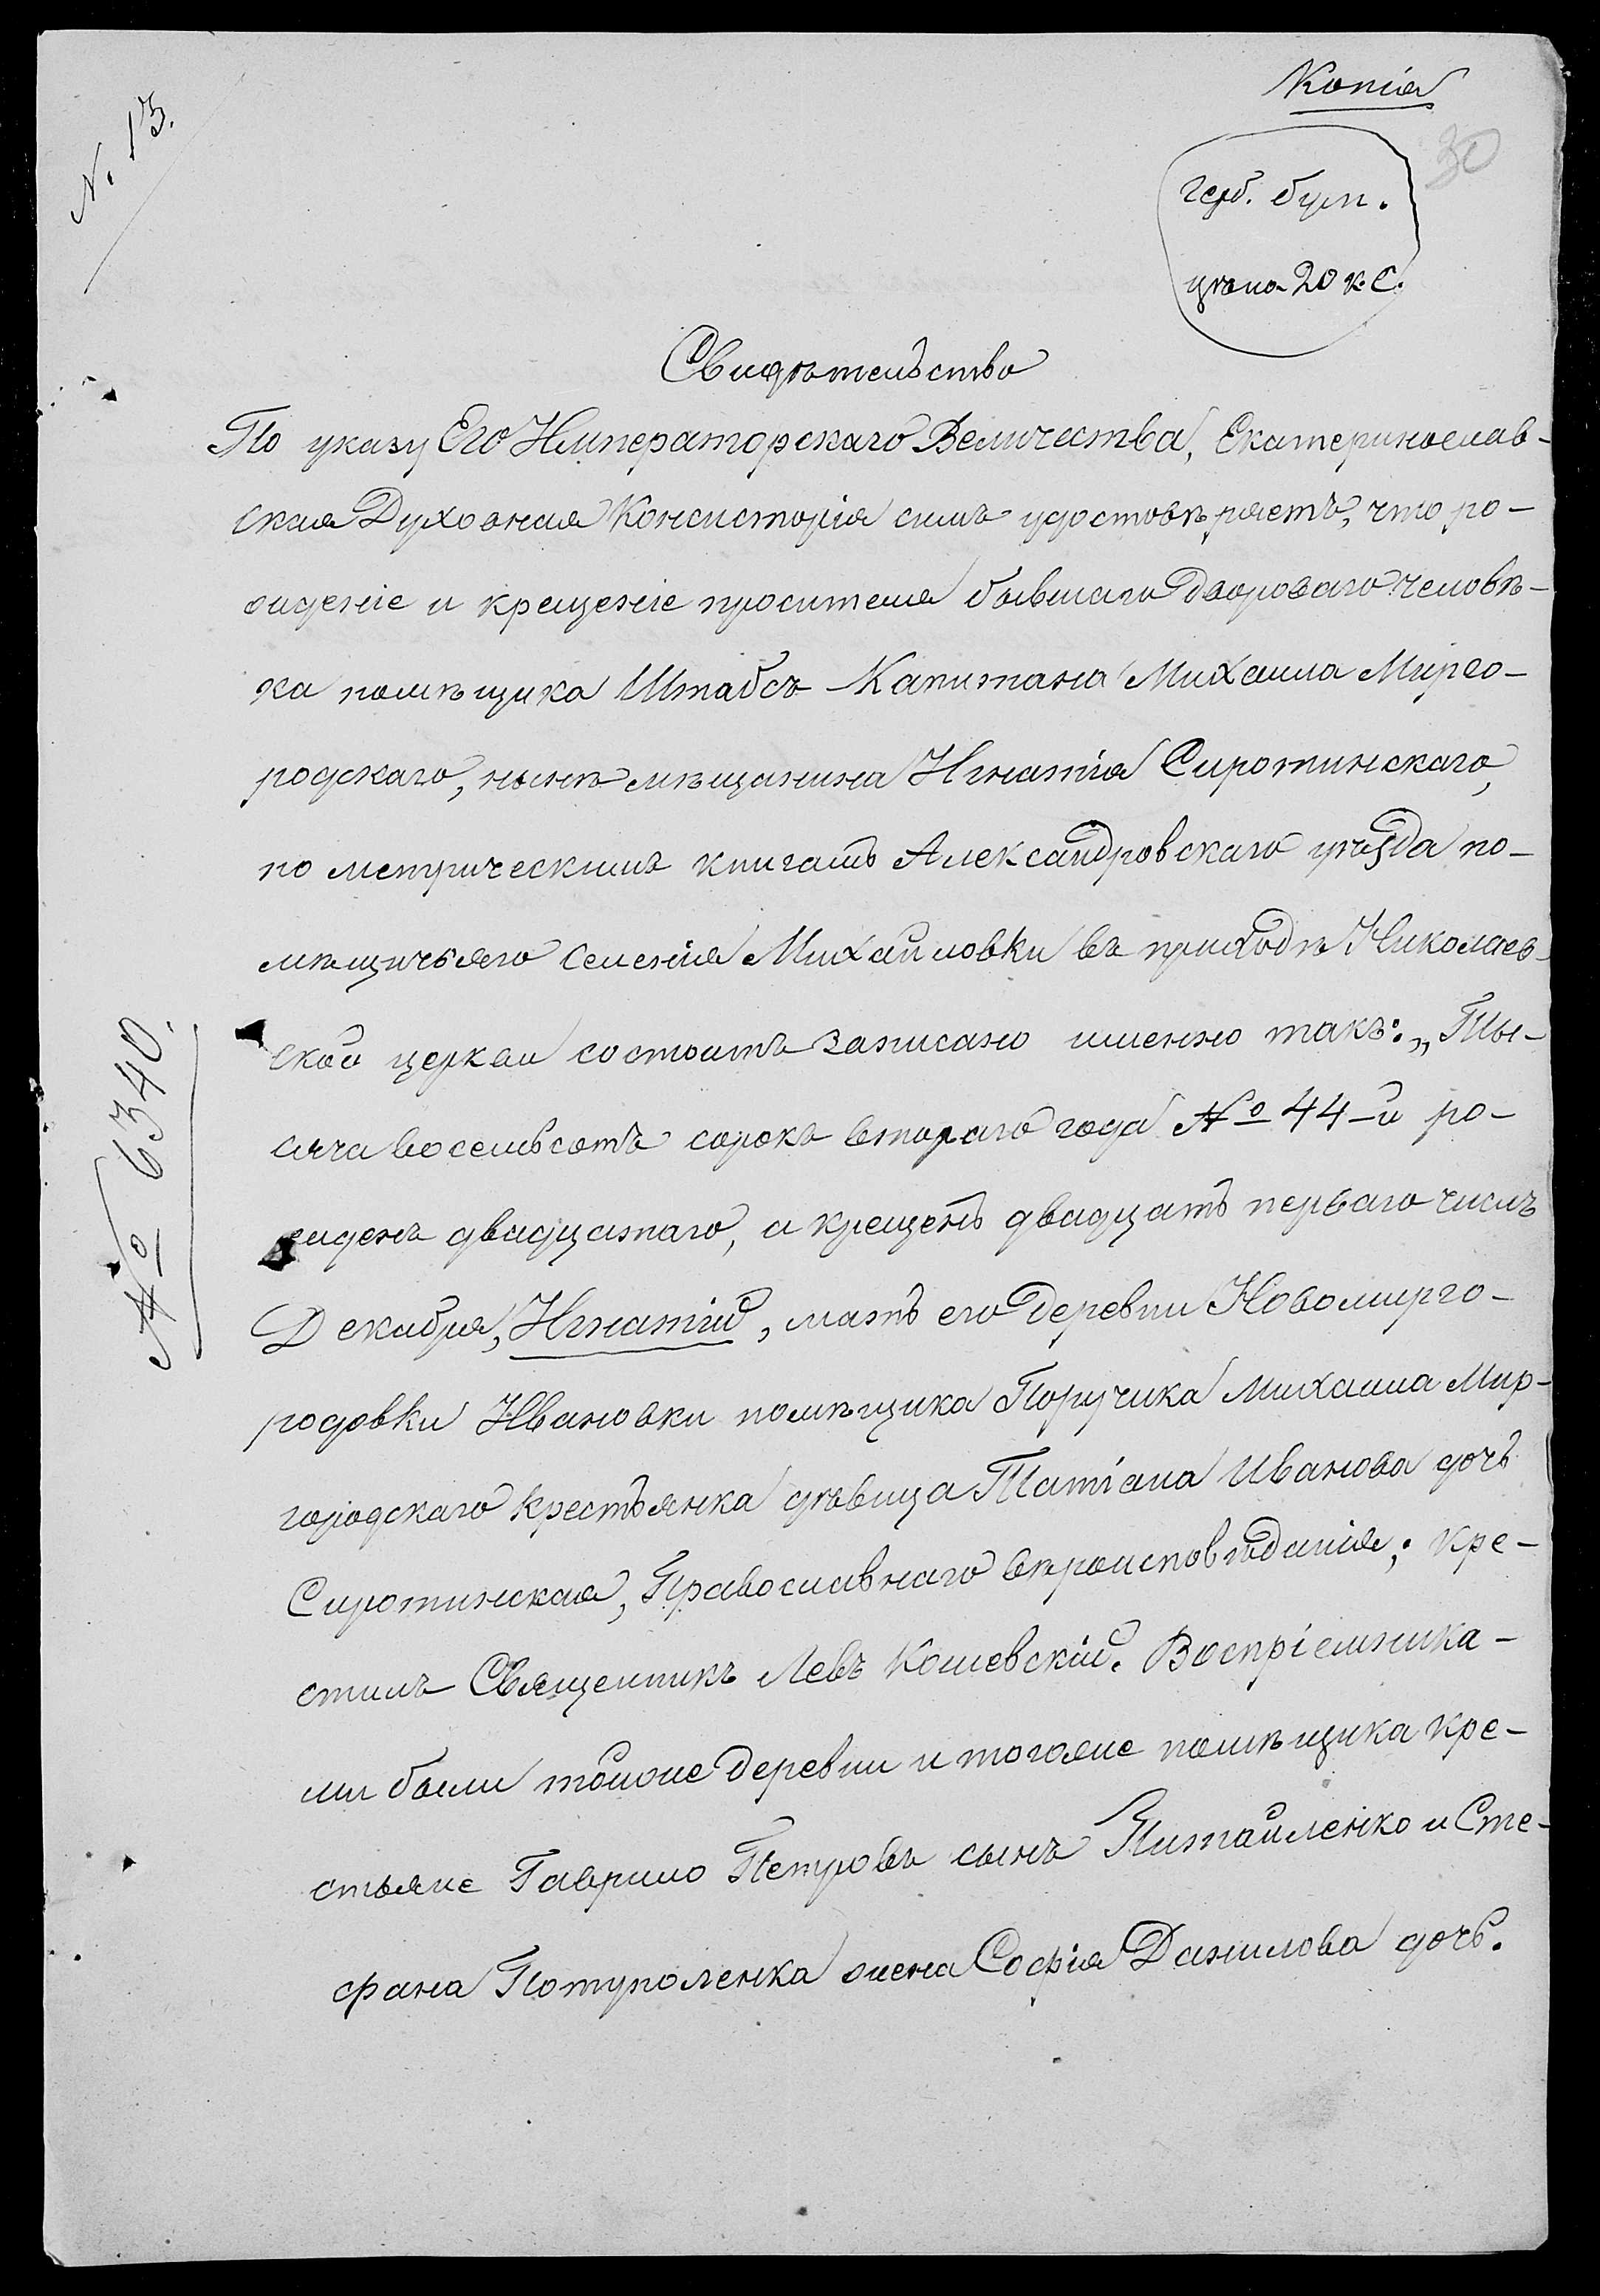 Копія
N. 13.
30
герб. бум.
цѣна 20 к. С.
Свидѣтельство
По указу Его Императорскаго Величества, Екатеринослав-
ская Духовная Консисторія симъ удостовѣряетъ, что ро-
жденіе и крещеніе просителя бывшаго двороваго человѣ-
ка помѣщика Штабсъ-Капитана Михаила Мирго-
родскаго, нынѣ мѣщанина Игнатія Сиротинскаго,
по метрическимъ книгамъ Александровскаго уѣзда по-
мѣщичьяго селенія Михайловки въ приходѣ Николаев-
ской церкви состоитъ записано именно такъ: „Ты-
сяча восемьсотъ сорокъ втораго года № 44-й ро-
жденъ двадцатаго, а крещенъ двадцать перваго числъ
Декабря, Игнатій, мать его деревни Новомирго-
родовки Ивановки помѣщика Поручика Михаила Мир-
городскаго крестьянка дѣвица Татіана Иванова дочь
Сиротинская, Православнаго вѣроисповѣданія; кре-
стилъ Священникъ Левъ Кошевскій. Воспріемника-
ми были тойже деревни и тогоже помѣщика кре-
стьяне Гаврило Петровъ сынъ Питайленко и Сте-
фана Потуроленка жена Софія Данилова дочь.
№ 6340.